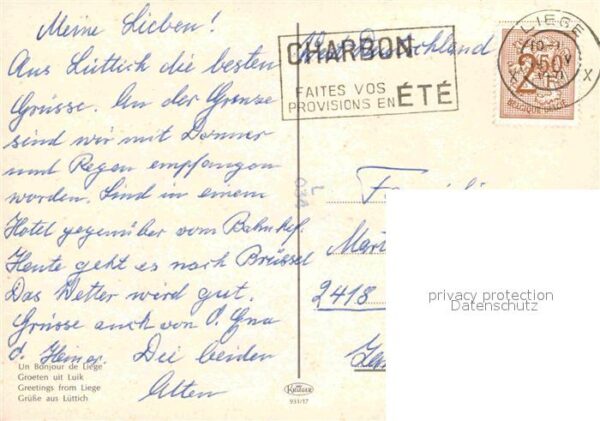 Meine Lieben!
Aus Lüttich die besten
Grüsse. An der Grenze
sind wir mit Donner
und Regen empfangen
worden. Sind in einem
Hotel gegenüber vom Bahnhof.
Heute geht es nach Brüssel
Das Wetter wird gut.
Grüsse auch von
Heiner. Die beiden
Alten
Un Bonjour de Liège
Groeten uit Luik
Greetings from Liege
Grüße aus Lüttich
CHARBON
FAITES VOS
PROVISIONS EN ÉTÉ
Westdeutschland
LIEGE
2F50
BELGIQUE-BELGIE
2418
privacy protection
Datenschutz
931/17